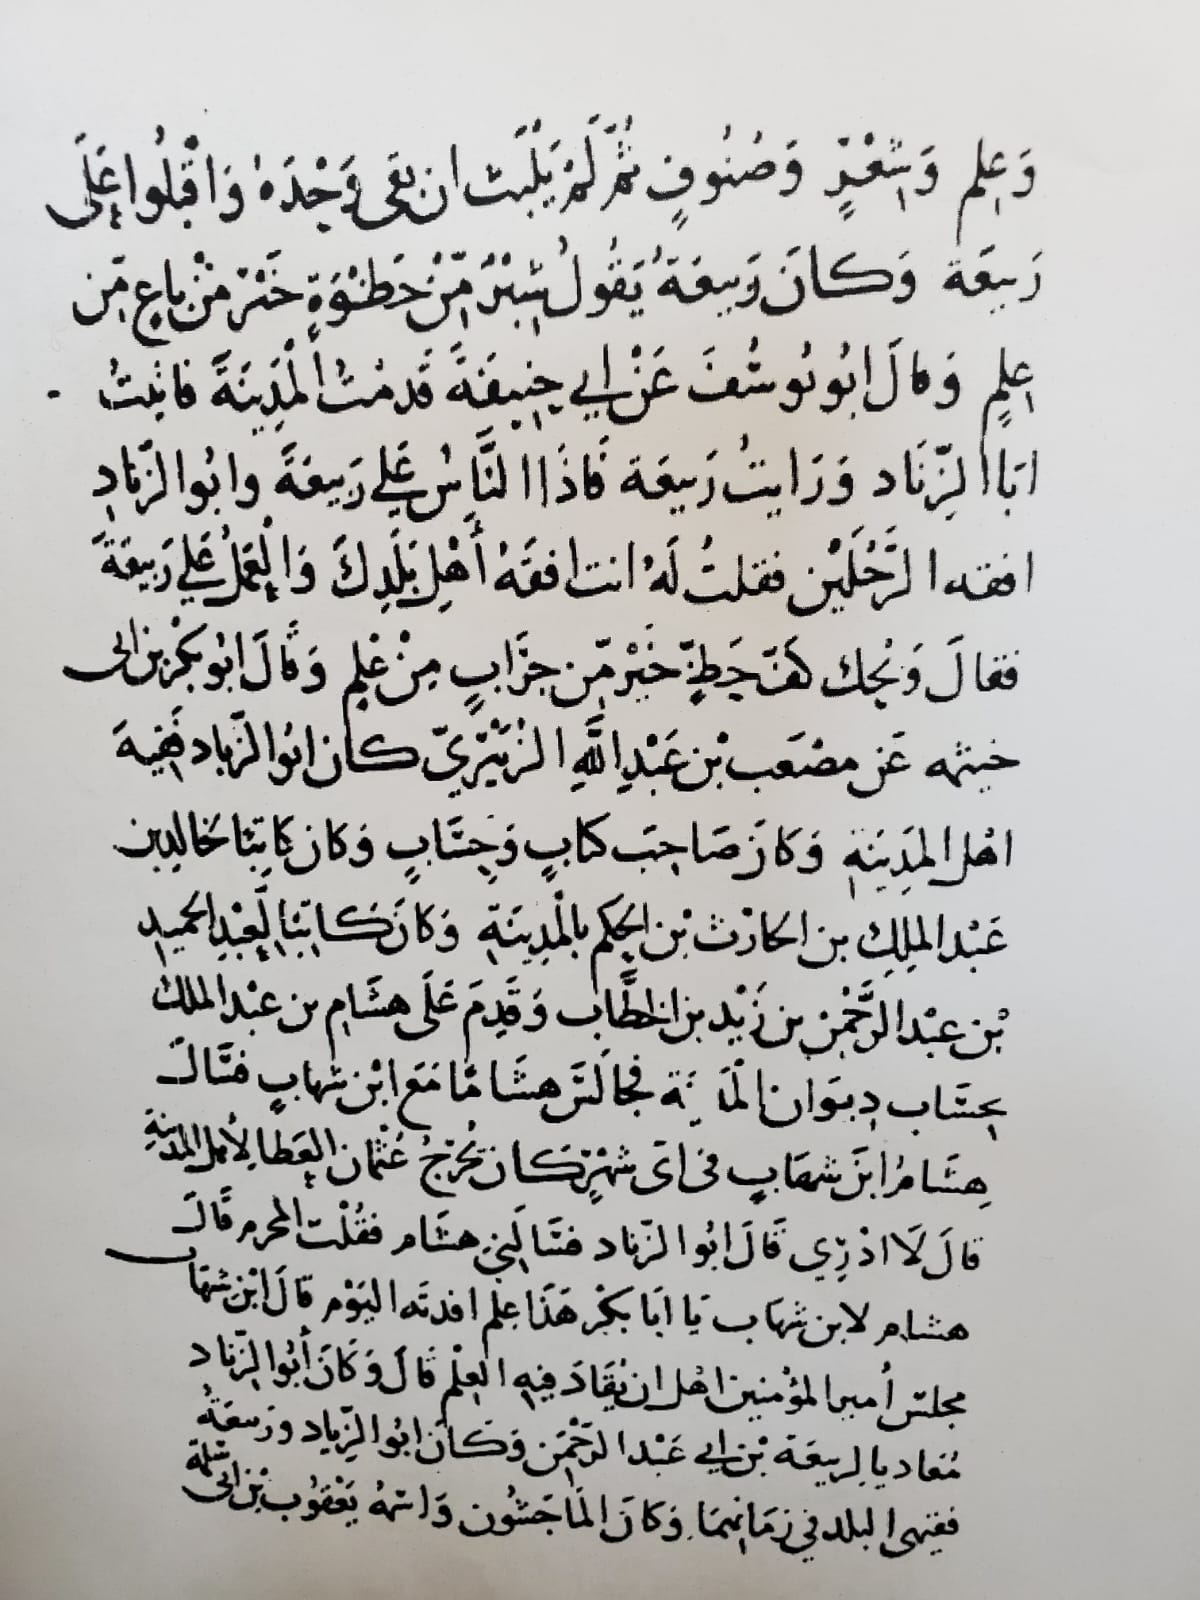 وَعِلم وَشِعْرٍ وَصُنُوفٍ ثُمَّ لَمْ يَلْبَث ان بَقى وَحْدَهُ وَاقْبَلُوا عَلَى
رَبيعَة وَكانَ رَبيعَةُ يَقُولُ شِبْرٌ مِّنْ حَظْوَةٍ خَيْرٌ مّنْ باعٍ مّن
عِلمٍ وَقالَ ابُو يُوسُفَ عَنْ ابي حِنيفَةَ قَدمْتُ الْمَدِينَةَ فاتيتُ
ابَا الزِّنَاد وَرَايتُ رَبيعَة فَاذَا النَّاسُ عَلي رَبيعَةَ وابُوا الزّنادِ
افقه الرَّجُلَيْن فقلتُ لَهُ انت افقَهُ أَهْلِ بَلَدِكَ وَالْعَمَلُ عَلي رَبيعَةَ
فقالَ وَيْحك كَفّ حَظٍّ خَيْر مّن جِرَابٍ مِنْ عْلمٍ وَقَالَ ابُو بَكْر بن ابى
خيثمه عَن مصْعَب بْن عَبْدِ اللَّهِ الزُبَيْرِيّ كان ابُوا الزّناد فَقِيهَ
اهْل المَدِينَةِ وَكانَ صَاحِبَ كتابٍ وَحِسَابٍ وَكان كاتِبًا لخالِد بن
عَبْد المَلِكِ بن الحارْث بْن الحِكم بالْمدِينَةِ وَكانَ كاتبًا لِعَبْدِ الحميدِ
بْن عبْد الرَّحْمٰنِ بن زَيْد بن الخطَّاب وَقَدِمَ عَلَى هشَامِ بن عبْد الملك
بحِسَاب دِيوَان المَدينَة فجَالَسَ هشَامًا مَعَ ابْن شهابٍ فسَالَ
هِشَامُ ابنَ شهَابٍ فى اى شهْرٍ كان يُخْرِجُ عُثْمان العَطا لأهل المَدينةِ
قالَ لَا ادْرِي قَالَ ابُوا الزّناد فسَالَنِي هشَام فقُلْت المحرم قَالَ
هشام لابن شهَاب يَا ابَا بَكْر هَذَا عِلم افدتَه اليَوْم قالَ ابْن شهَاب
مجلسُ أمير المؤمنين اهْل ان يُفَادَ فيِهِ العِلْم قَالَ وَكَانَ أَبُوا الزِّنادِ
مُعاديا لِربيعَة بْن ابي عَبْد الرَّحْمٰن وَكانَ ابُوا الزِّناد وَرَبيعَةُ
فقيهى البلد في زمَانِهِمَا وَكانَ المَاجَشُون وَاسْمُهُ يَعْقوُب بْن ابى سَلمَة